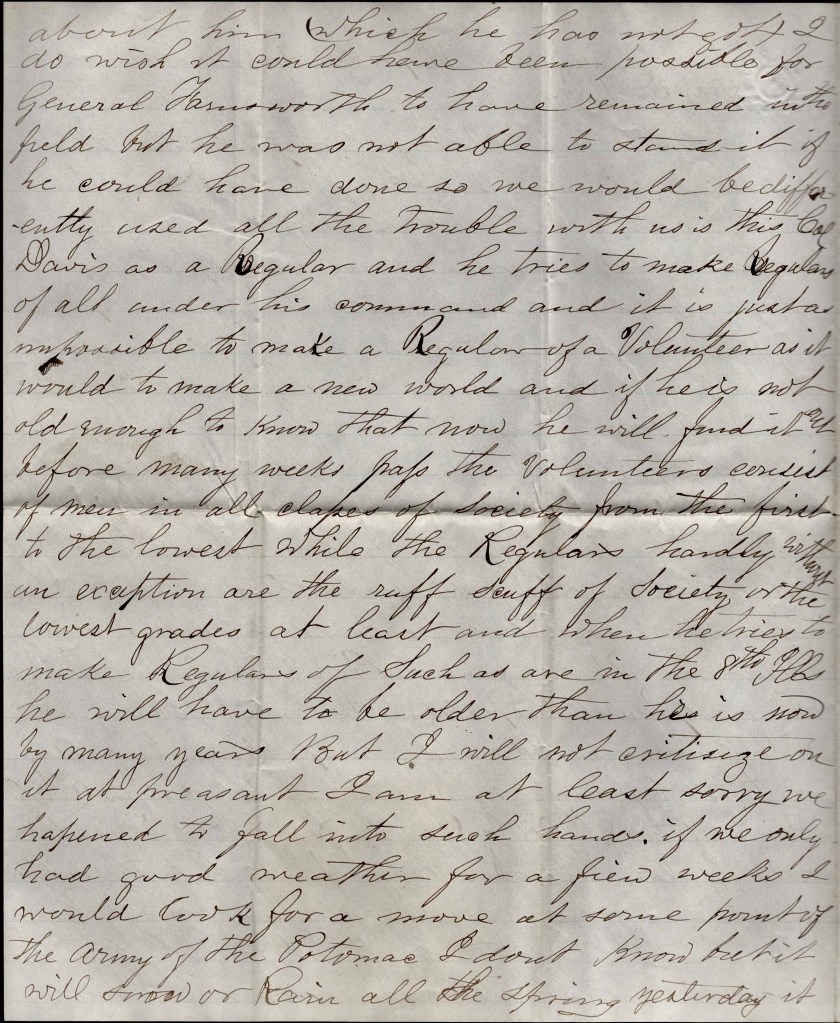 about him (which he has not got) I
do wish it could have been possible for
General Farnsworth to have remained in the
field but he was not able to stand it if
he could have done so we would be differ
-ently used all the trouble with us is this Col
Davis as a Regular and he tries to make Regulars
of all under his command and it is just as
impossible to make a Regular of a Volunteer as it
would to make a new world and if he is not
old enough to know that now he will find it out
before many weeks pass the Volunteers consist
of men in all classes of society from the first
to the lowest while the Regulars hardly without
an exception are the ruff scuff of Society or the
lowest grades at least and when he tries to
make Regulars of Such as are in the 8th Ills
he will have to be older than he is now
by many years But I will not critisize on
it at preasant I am at least sorry we
hapened to fall into such hands. if we only
had good weather for a fiew weeks I
would look for a move at some point of
the Army of the Potomac I dont know but it
will snow or Rain all the spring yesterday it